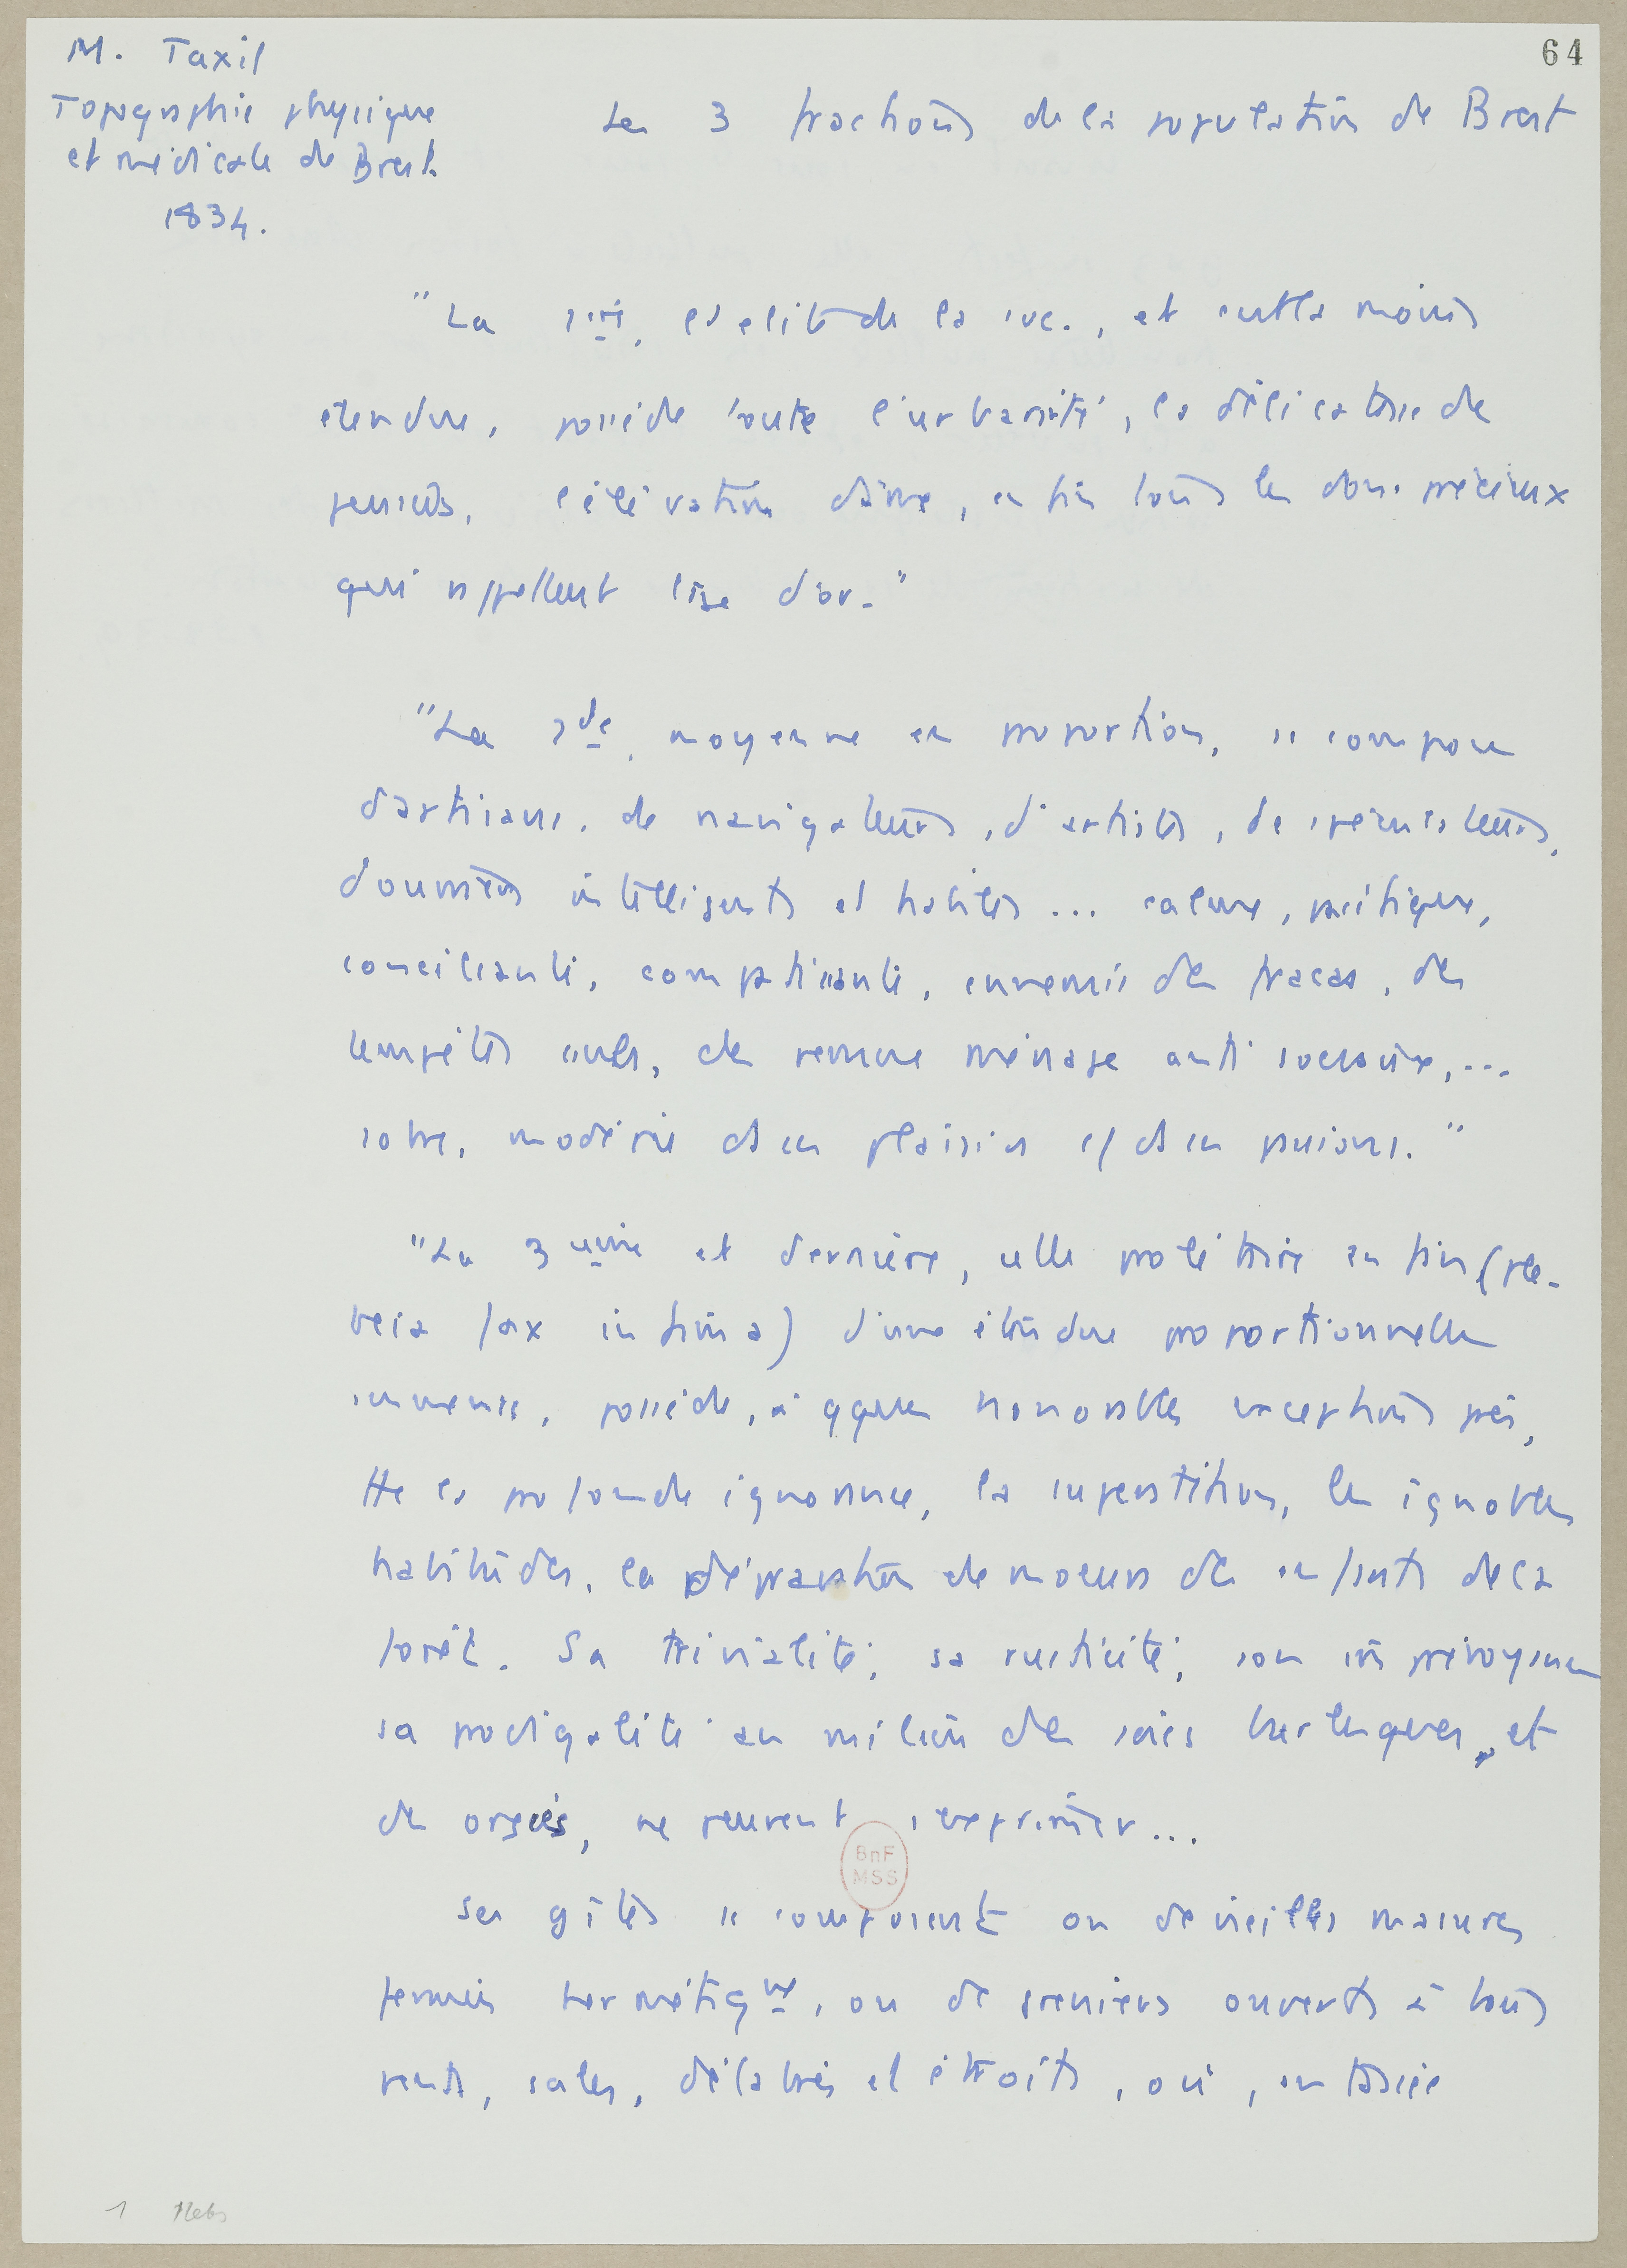 64
M. Taxil
Topographie physique
et médicale de Brest.
1834.
Les 3 fractions de la population de Brest
"La 1ère, la elite de la soc., et c'est la moins
étendue, possède toute l'urbanité, la délicatesse de
pensées, l'élévation d'âme, enfin tous les dons précieux
qui rappellent l'âge d'or."
"La 2de, moyenne en proportion, se compose
d'artisans, de navigateurs, d'artistes, de spéculateurs,
d'ouvriers intelligents et habiles... calme, pacifique,
conciliante, compatissante, ennemie des fracas, des
tempêtes, des remue ménage anti sociaux,...
sobre, modérée ds ses plaisirs et ds ses passions."
"La 3eme et dernière, celle prolétaire enfin (ple-
beia fax infima) d'une étendue proportionnelle
immense, possède, à qques honorables exceptions près,
tte la profonde ignorance, la superstition, les ignobles
habitudes, la dépravation de moeurs des enfants de la
forêt. Sa trivialité, sa rusticité, son imprévoyance
sa prodigalité au milieu des joies burlesques, et
des orgies, ne peuvent s'exprimer...
Ses gîtes se composent ou de vieilles masures
fermées hermétiqme, ou de greniers ouverts à tous
vents, sales, délabrés et étroits, où, entassée
BnF
MSS
1 Plebs